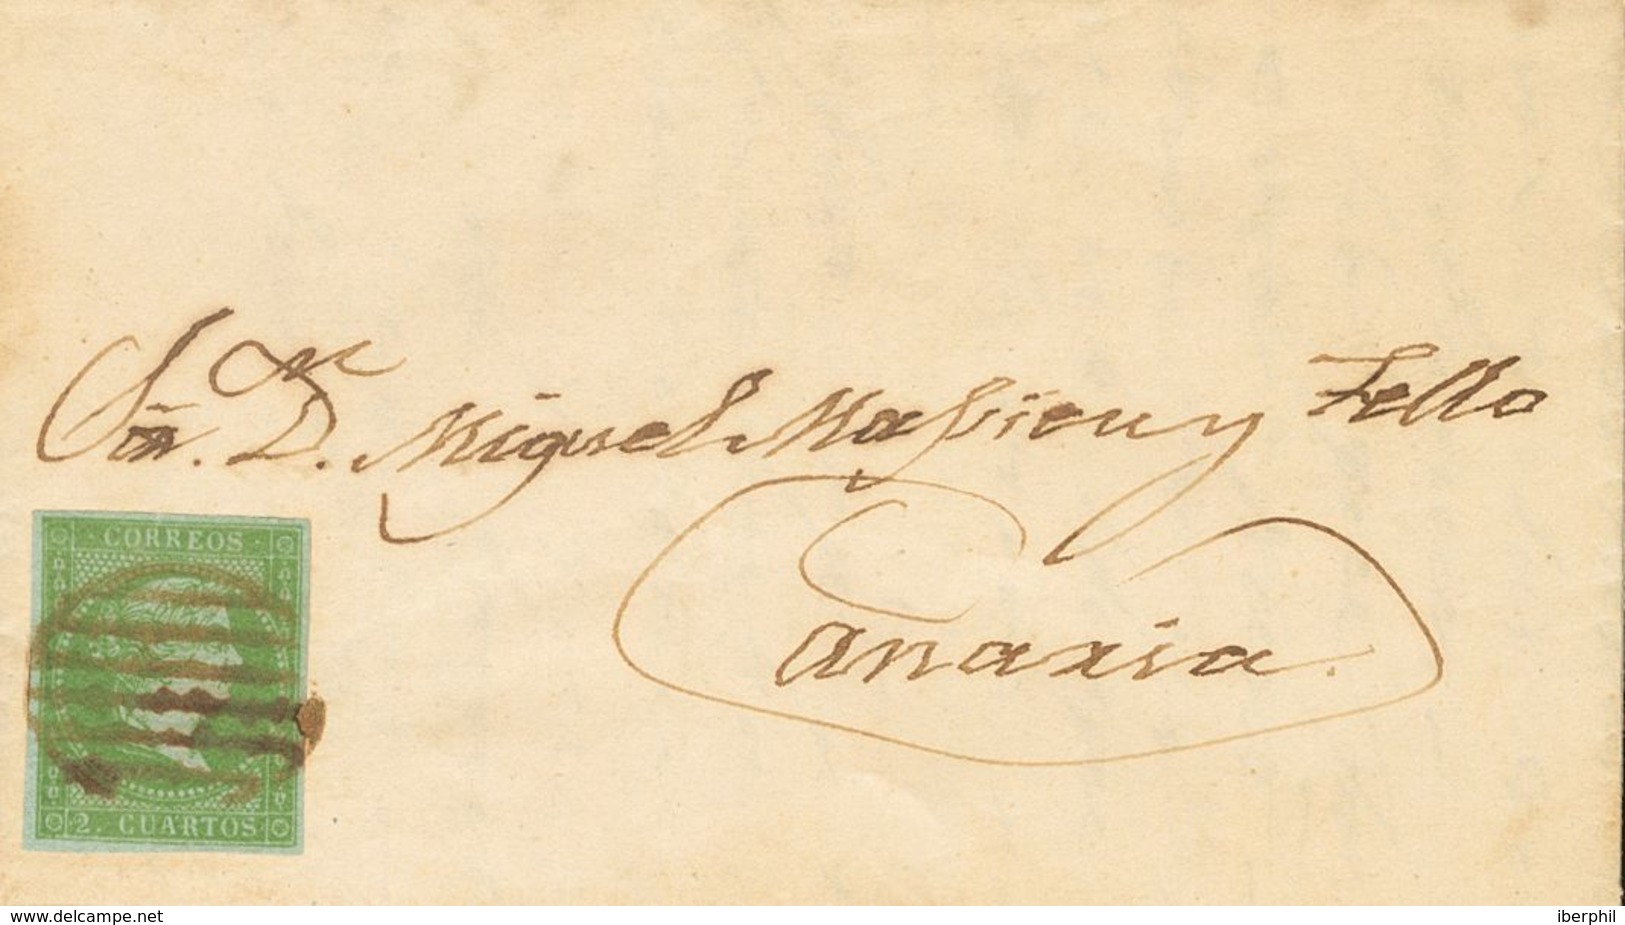 Sr. Dn. D. Miguel Massieu y Tello
Canaria.
CORREOS
2. CUARTOS
www.delcampe.net
iberphil